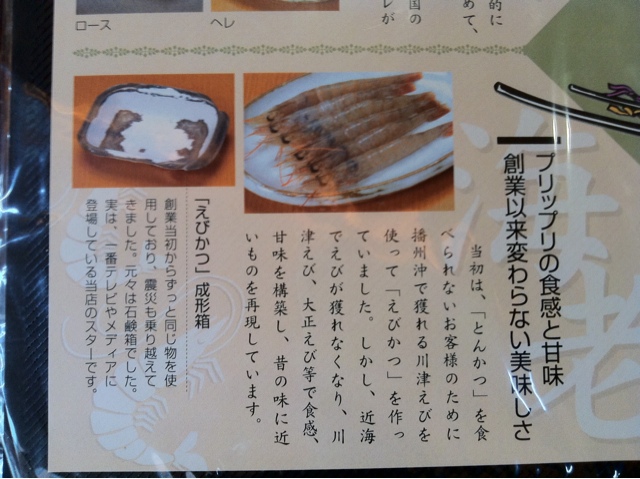 ロース
ヘレ
的に
めて、
国の
レが
海老
プリップリの食感と甘味
創業以来変わらない美味しさ
当初は、「とんかつ」を食
べられないお客様のために
播州沖で獲れる川津えびを
使って「えびかつ」を作っ
ていました。しかし、近海
でえびが獲れなくなり、川
津えび、大正えび等で食感、
甘味を構築し、昔の味に近
いものを再現しています。
「えびかつ」成形箱
創業当初からずっと同じ物を使
用しており、震災も乗り越えて
きました。元々は石鹸箱でした。
実は、一番テレビやメディアに
登場している当店のスターです。